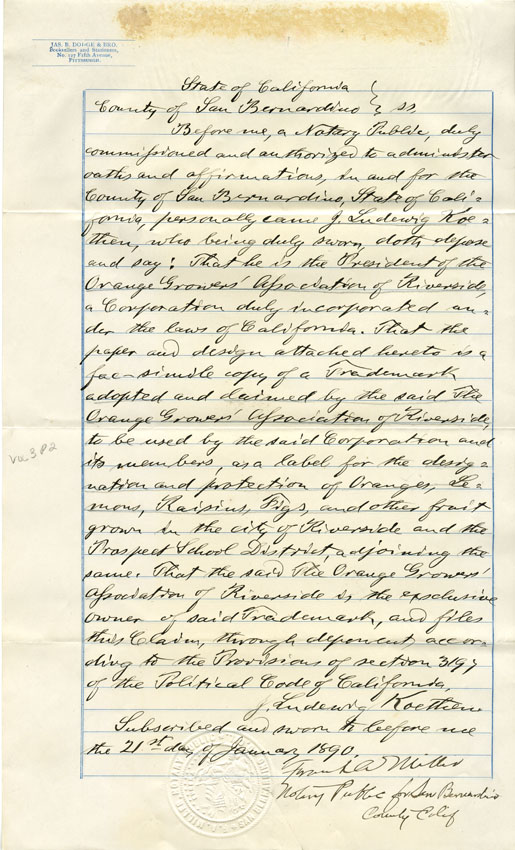 JAS. B. DODGE & BRO.
Booksellers and Stationers,
No. 127 Fifth Avenue,
PITTSBURGH.
State of California }
County of San Bernardino } ss.
Before me, a Notary Public, duly
commissioned and authorized to administer
oaths and affirmations, in and for the
County of San Bernardino, State of Cali=
fornia, personally came J. Ludewig Koe=
then, who being duly sworn, doth depose
and say: That he is the President of the
Orange Growers' Association of Riverside,
a Corporation duly incorporated un-
der the laws of California. That the
paper and design attached hereto is a
fac-simile copy of a Trademark
adopted and claimed by the said The
Orange Growers' Association of Riverside,
to be used by the said Corporation and
its members, as a label for the desig=
nation and protection of Oranges, Le=
mons, Raisins, Figs, and other fruit
grown in the city of Riverside and the
Prospect School District, adjoining the
same. That the said The Orange Growers'
Association of Riverside is the exclusive
owner of said Trademark, and files
this Claim, through deponent, accor-
ding to the Provisions of section 3197
of the Political Code of California.
J. Ludewig Koethen
Subscribed and sworn to before me
the 21st day of January 1890.
Frank A Miller
Notary Public for San Bernardino
County Calif
382